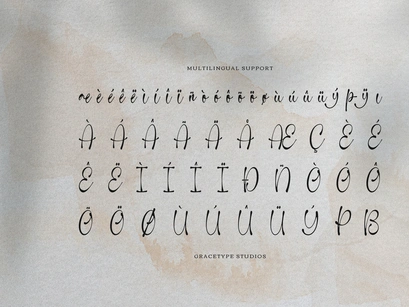 MULTILINGUAL SUPPORT
æ è é ê ë ì í î ï ñ ò ó ô õ ö ø ù ú û ü ý þ ÿ ı
À Á Â Ã Ä Å Æ Ç È É
Ê Ë Ì Í Î Ï Ð Ñ Ò Ó Ô
Õ Ö Ø Ù Ú Û Ü Ý Þ ß
GRACETYPE STUDIOS